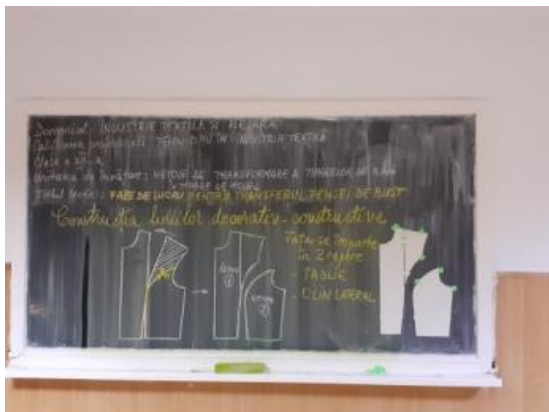 Domeniul: INDUSTRIE TEXTILĂ ȘI PIELĂRIE
Calificarea profesională: TEHNICIAN ÎN INDUSTRIA TEXTILĂ
Clasa a XII-a
Unitatea de învățare: METODE DE TRANSFORMARE A TIPARELOR DE BAZĂ
ÎN TIPARE DE MODEL
Titlul lecției: FAZE DE LUCRU PENTRU TRANSFERUL PENSEI DE BUST
Construcția liniilor decorativ-constructive
Fața se împarte
în 2 repere
- TABLIE
- CLIN LATERAL
Reper
1
Reper
2